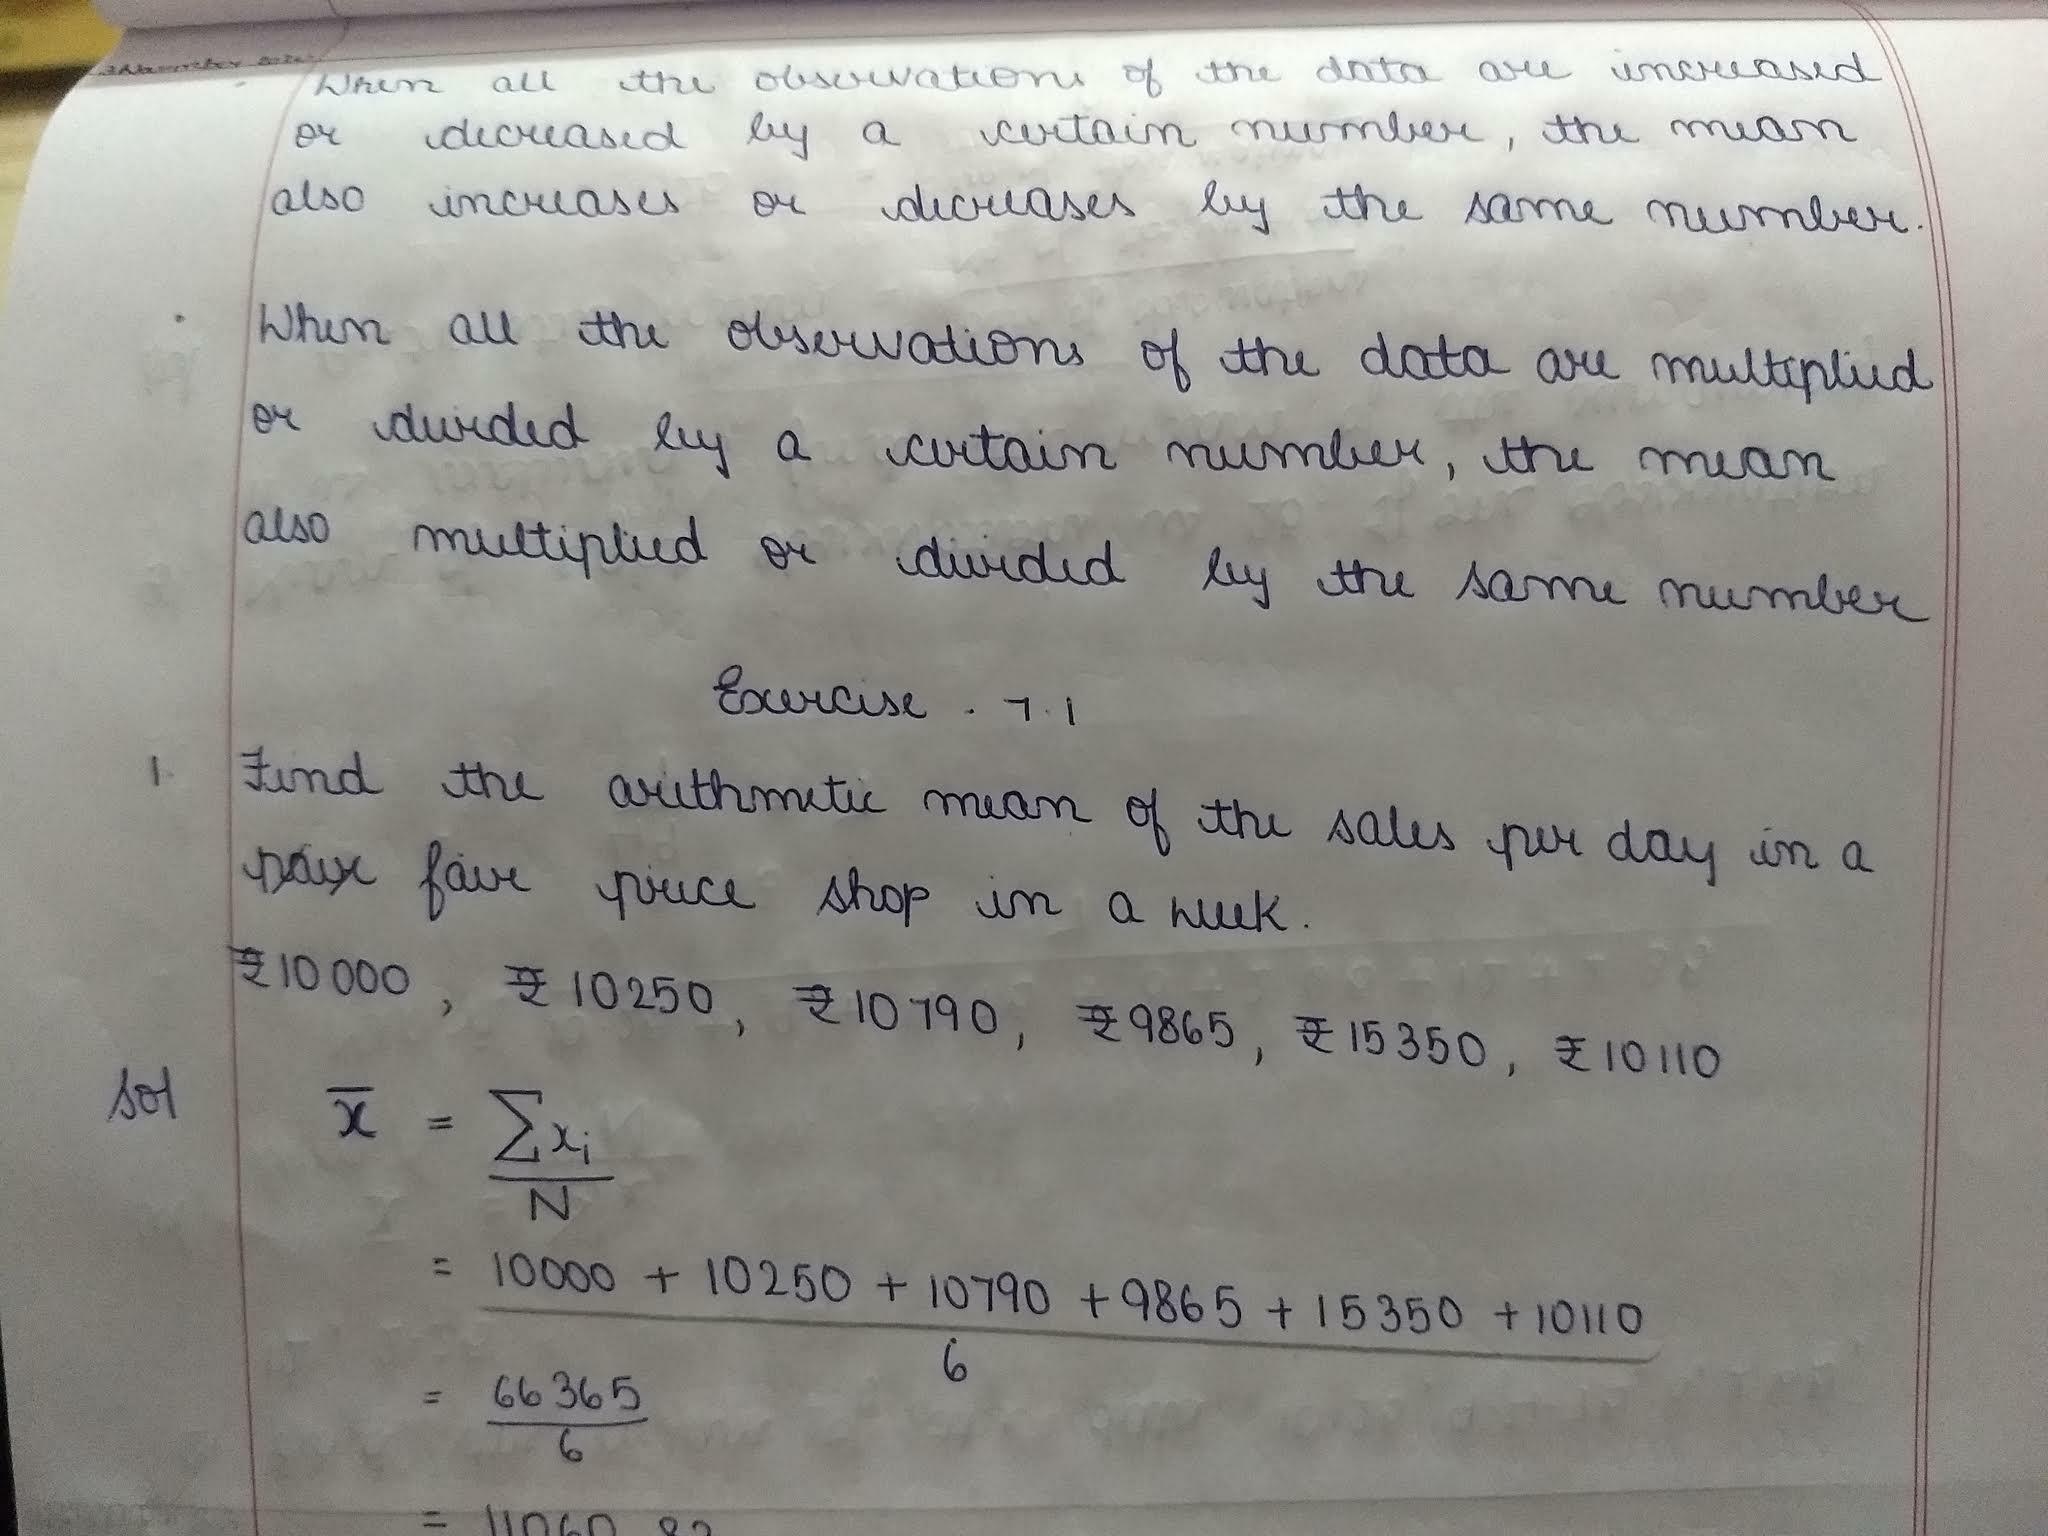 · When all the observations of the data are increased
or decreased by a certain number, the mean
also increases or decreases by the same number.
· When all the observations of the data are multiplied
or divided by a certain number, the mean
also multiplied or divided by the same number
Exercise . 7.1
1. Find the arithmetic mean of the sales per day in a
fair price shop in a week.
₹10000, ₹10250, ₹10790, ₹9865, ₹15350, ₹10110
Sol x̄ = Σxi
N
= 10000 + 10250 + 10790 + 9865 + 15350 + 10110
6
= 66365
6
= 11060.83